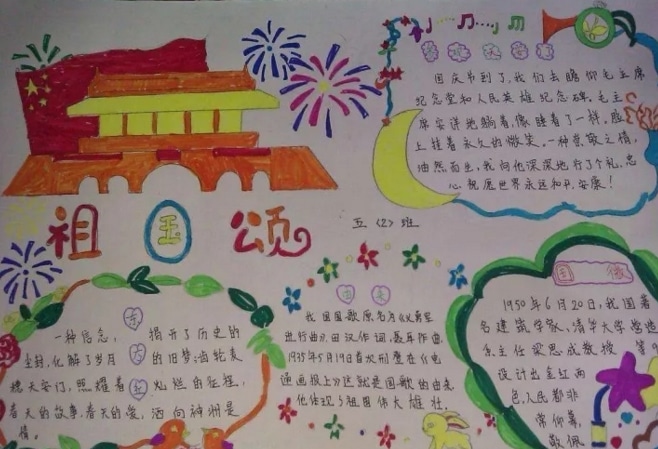 国庆节到了,我们去瞻仰毛主席
纪念堂和人民英雄纪念碑。毛主
席安详地躺着,像睡着了一样,脸
上挂着永久的微笑。一种崇敬之情,
油然而生,我向他深深地行了个礼,忠
心祝愿世界永远和平、安康!
祖国颂
五〈2〉班
东方红
一种信念, 揭开了历史的
尘封,化解了岁月 的旧梦;齿轮麦
穗天安门,照耀着 灿烂的征程,
春天的故事,春天的 洒向神州是
情。
我国国歌原名为《义勇军
进行曲》,田汉作词,聂耳作曲。
1935年5月19日首次刊登在《电
通画报上》这就是国歌的由来
他体现了祖国伟大雄壮。
国徽
1950年6月20日,我国著
名建筑学家、清华大学营造
系主任梁思成教授 等9
设计出金红两
色,人民都非
常仰慕,
敬佩